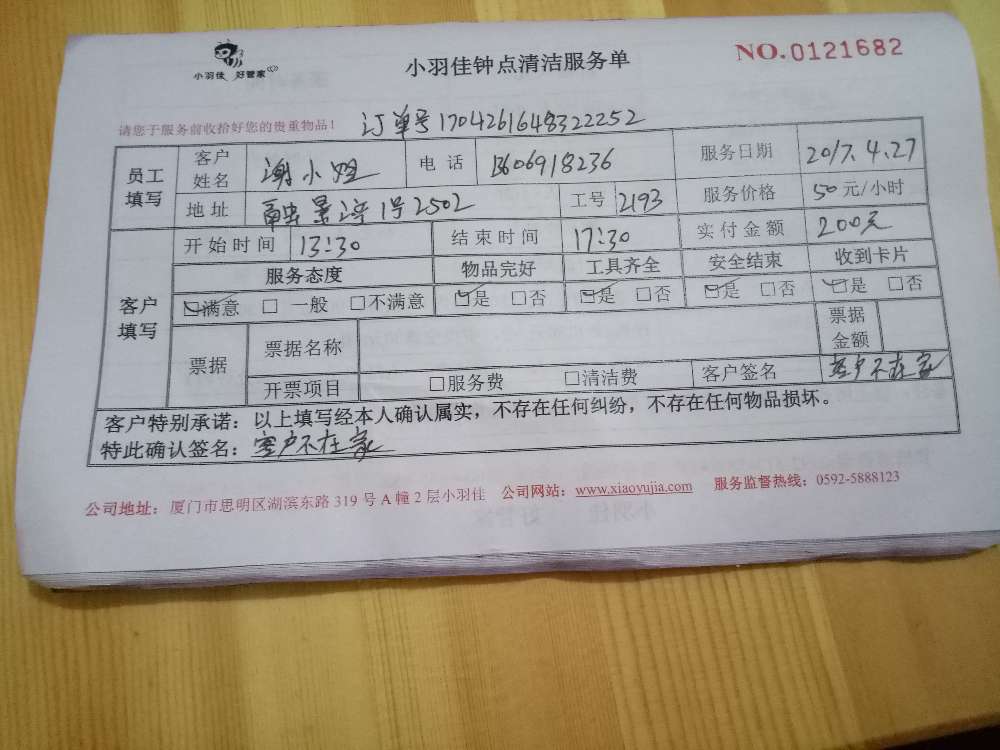 小羽佳 好管家
小羽佳钟点清洁服务单
NO.0121682
请您于服务前收拾好您的贵重物品！
订单号1704261648322252
员工填写 客户姓名 谢小姐 电话 13606918236 服务日期 2017.4.27
地址 景 1号2502 工号 2193 服务价格 50元/小时
客户填写 开始时间 13:30 结束时间 17:30 实付金额 200元
服务态度 物品完好 工具齐全 安全结束 收到卡片
☑满意 □一般 □不满意 ☑是 □否 ☑是 □否 ☑是 □否 ☑是 □否
票据 票据名称 票据金额
开票项目 □服务费 □清洁费 客户签名 客户不在家
客户特别承诺：以上填写经本人确认属实，不存在任何纠纷，不存在任何物品损坏。
特此确认签名：客户不在家
公司地址：厦门市思明区湖滨东路 319 号 A 幢 2 层小羽佳 公司网站：www.xiaoyujia.com 服务监督热线：0592-5888123